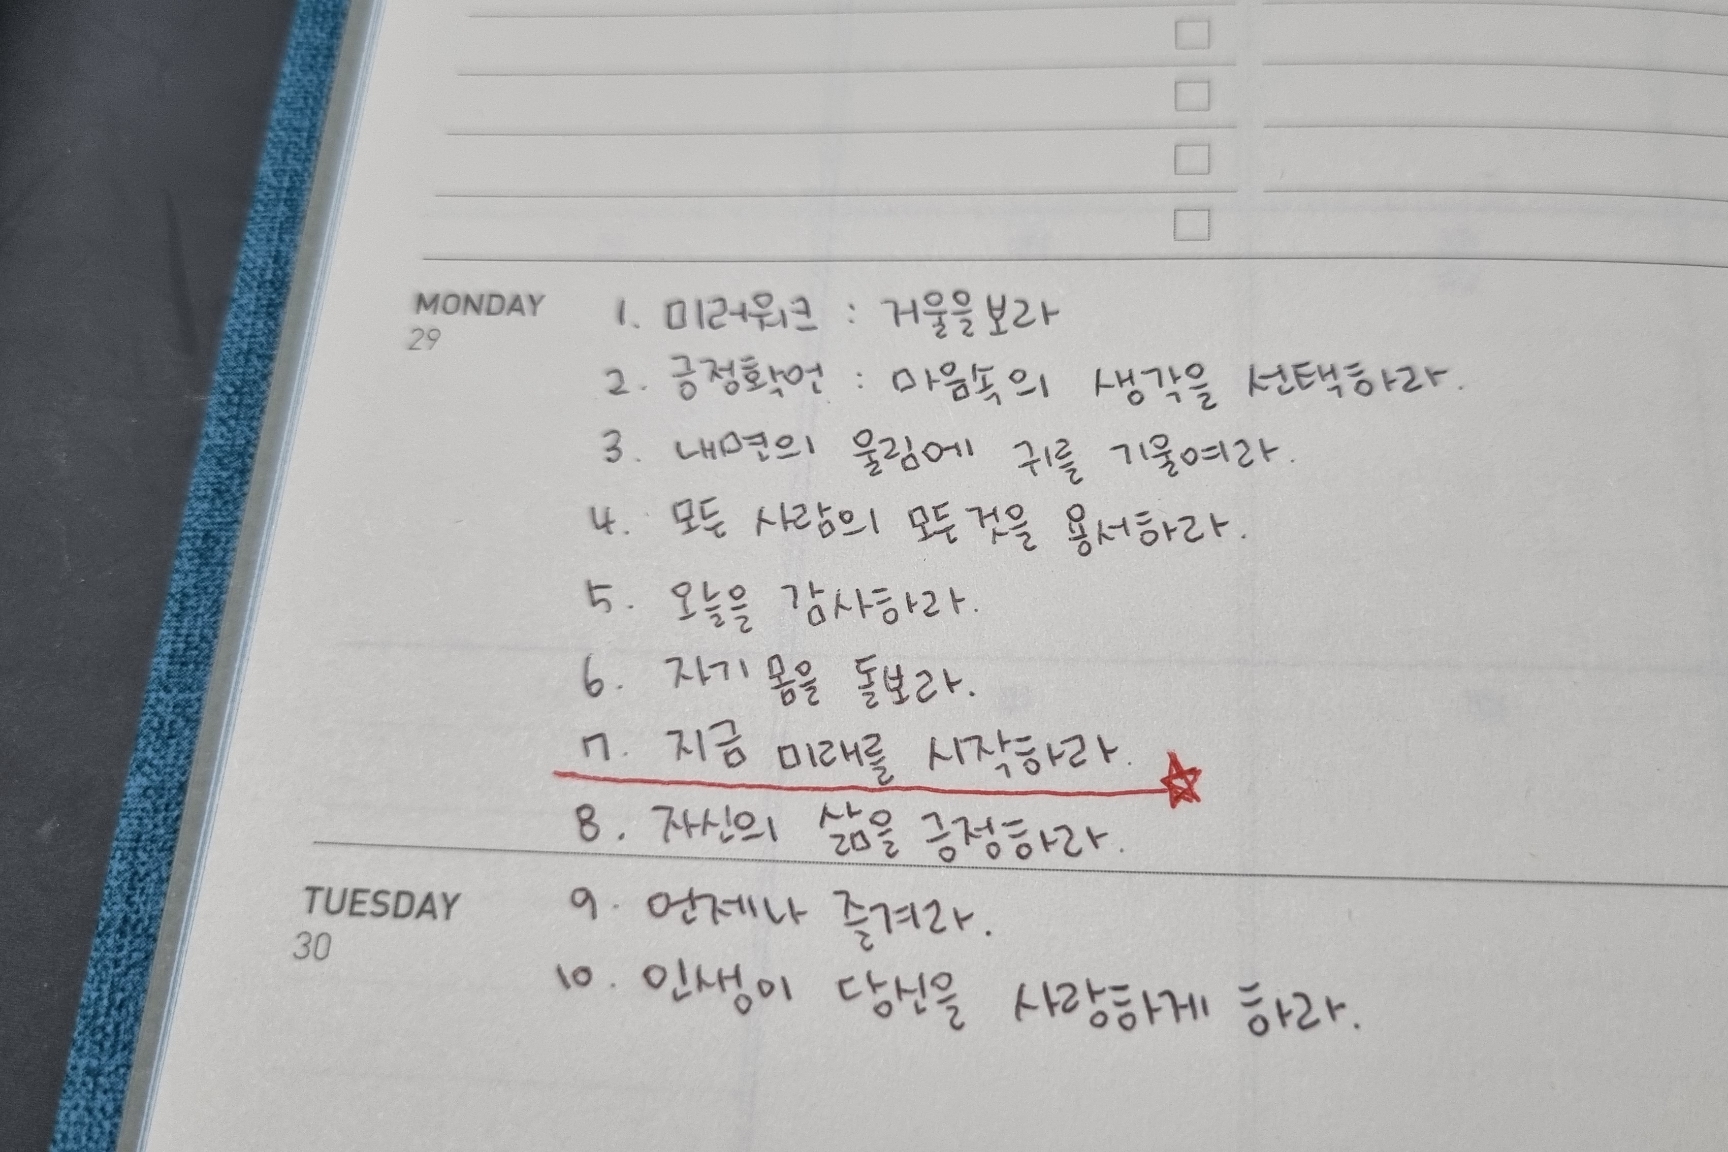 MONDAY
29
1. 미러워크 : 거울을보라
2. 긍정확언 : 마음속의 생각을 선택하라.
3. 내면의 울림에 귀를 기울여라.
4. 모든 사람의 모든것을 용서하라.
5. 오늘을 감사하라.
6. 자기 몸을 돌보라.
7. 지금 미래를 시작하라.
8. 자신의 삶을 긍정하라.
TUESDAY
30
9. 언제나 즐겨라.
10. 인생이 당신을 사랑하게 하라.